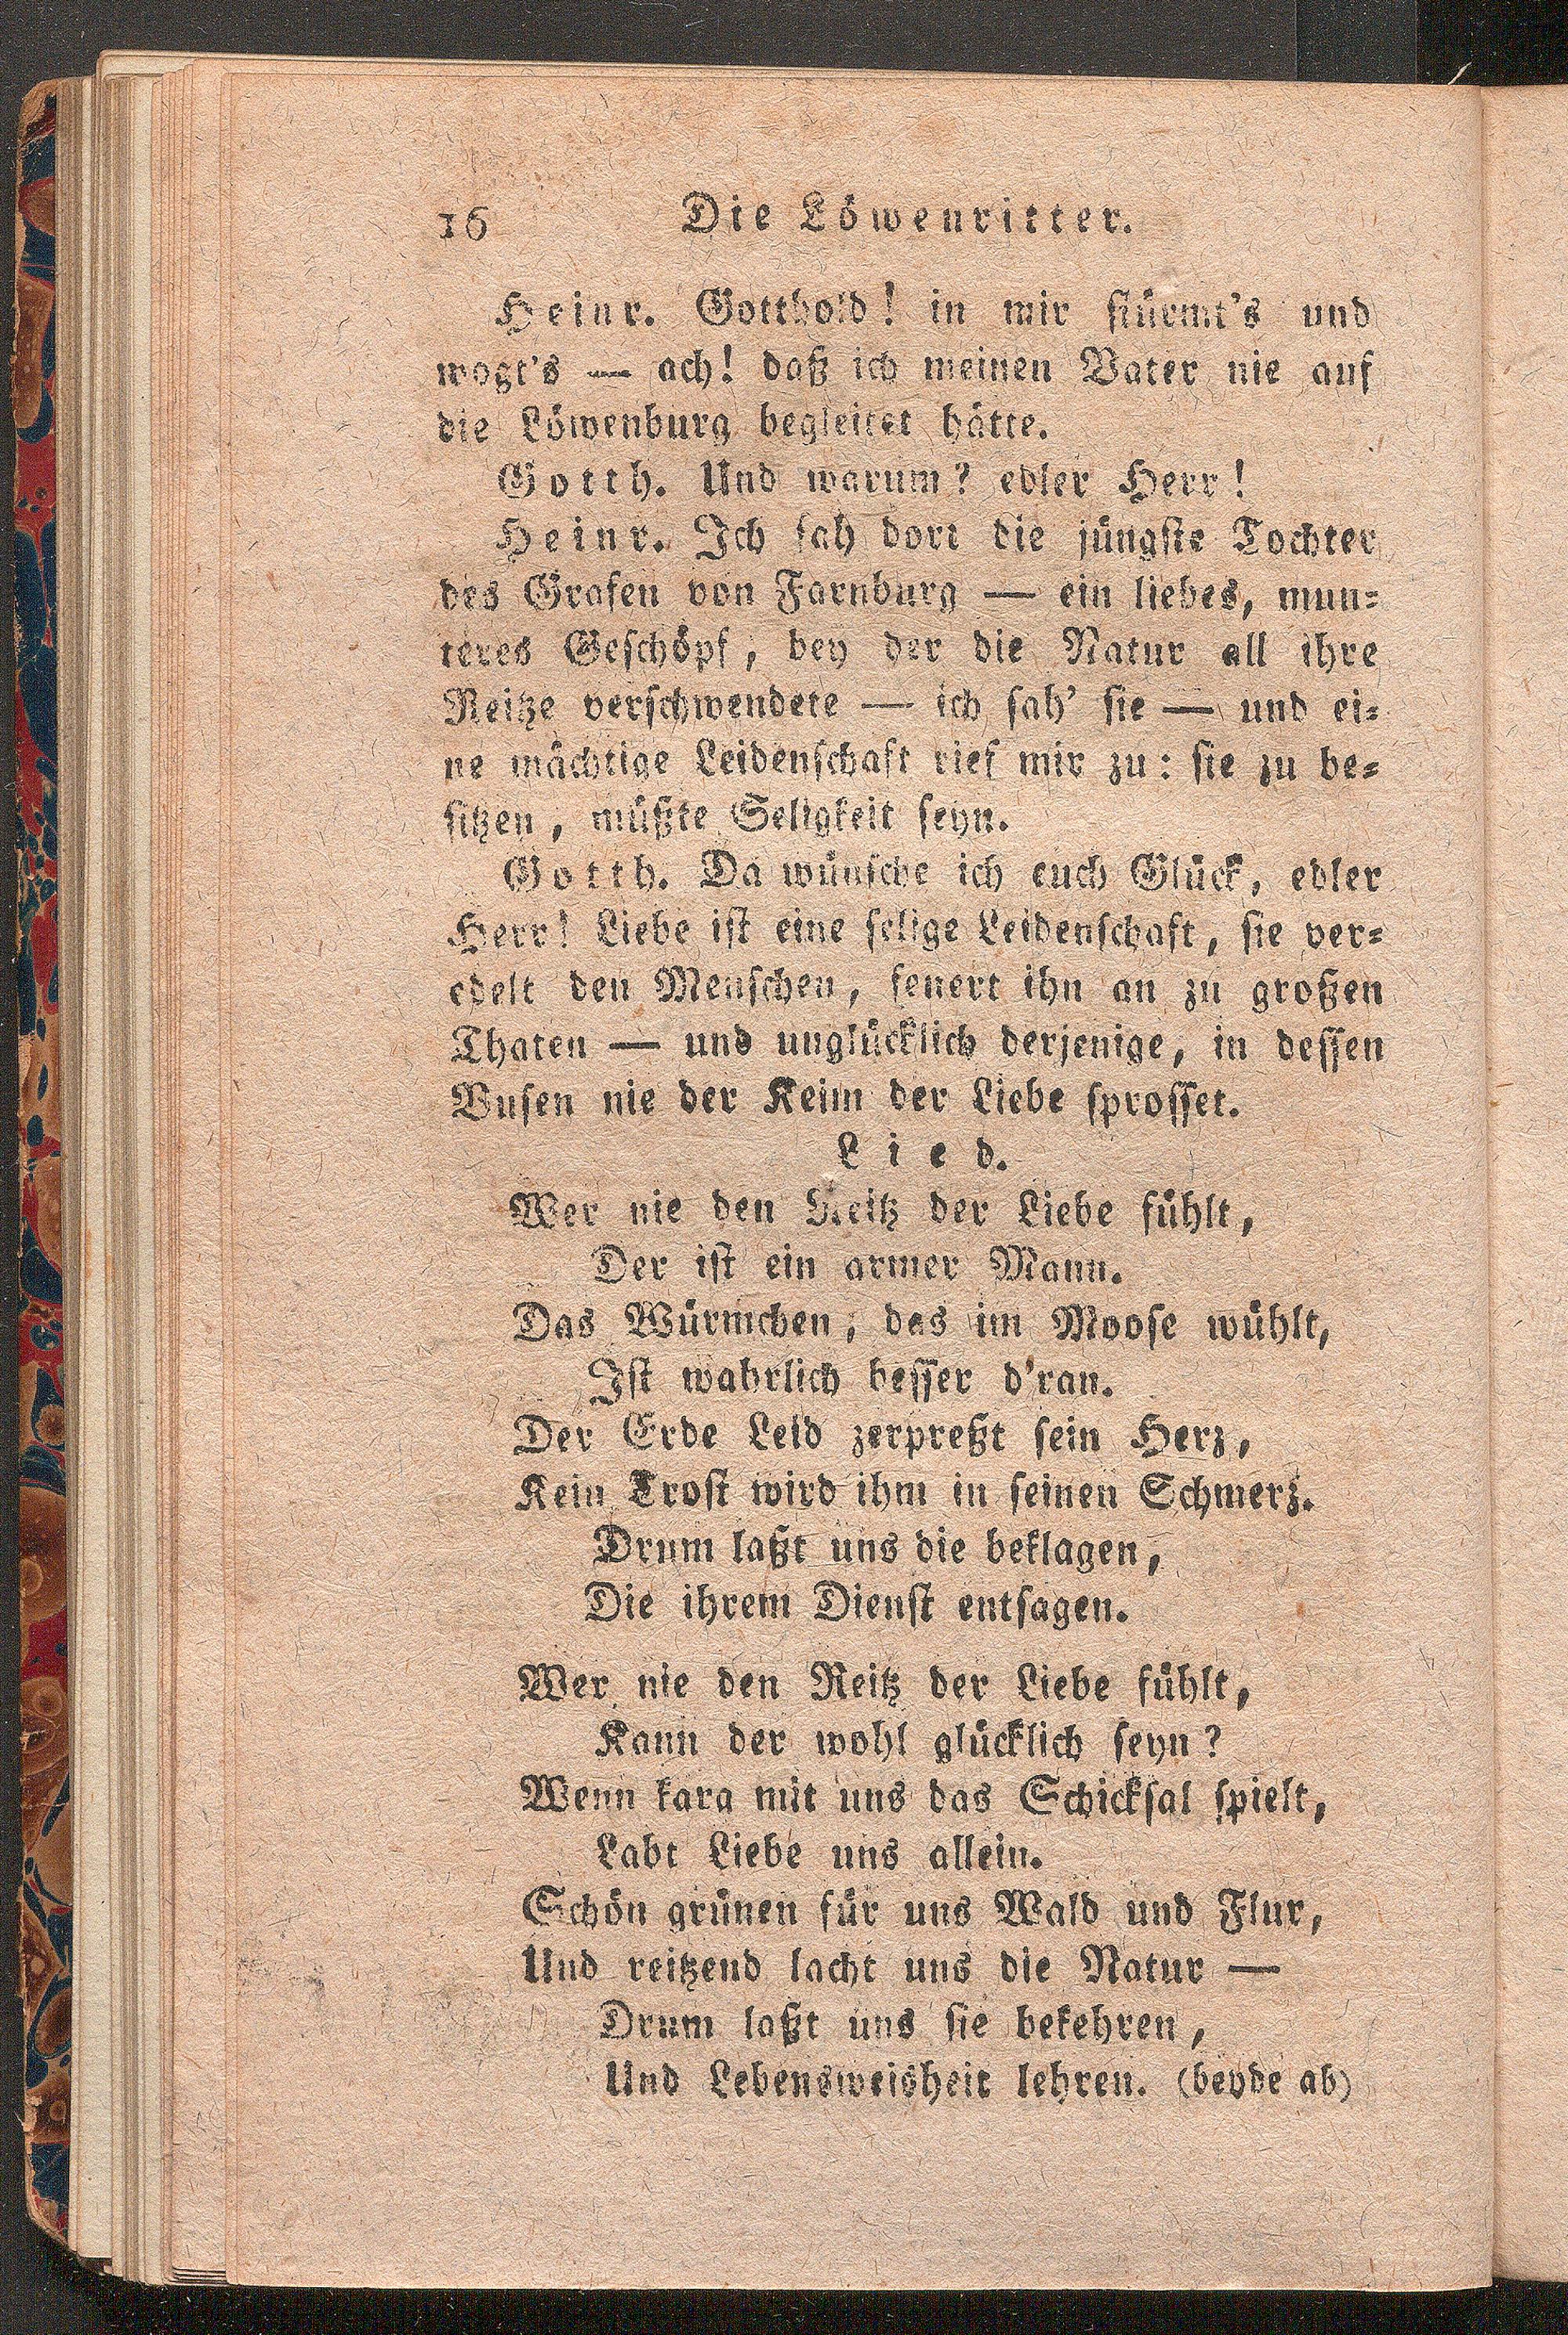 16 Die Löwenritter.
Heinr. Gotthold! in mir stürmt's und
wogt's — ach! daß ich meinen Vater nie auf
die Löwenburg begleitet hätte.
Gotth. Und warum? edler Herr!
Heinr. Ich sah dort die jüngste Tochter
des Grafen von Farnburg — ein liebes, mun-
teres Geschöpf, bey der die Natur all ihre
Reitze verschwendete — ich sah' sie — und ei-
ne mächtige Leidenschaft rief mir zu: sie zu be-
sitzen, müßte Seligkeit seyn.
Gotth. Da wünsche ich euch Glück, edler
Herr! Liebe ist eine selige Leidenschaft, sie ver-
edelt den Menschen, feuert ihn an zu großen
Thaten — und unglücklich derjenige, in dessen
Busen nie der Keim der Liebe sprosset.
Lied.
Wer nie den Reitz der Liebe fühlt,
Der ist ein armer Mann.
Das Würmchen, das im Moose wühlt,
Ist wahrlich besser d'ran.
Der Erde Leid zerpreßt sein Herz,
Kein Trost wird ihm in seinen Schmerz.
Drum laßt uns die beklagen,
Die ihrem Dienst entsagen.
Wer nie den Reitz der Liebe fühlt,
Kann der wohl glücklich seyn?
Wenn karg mit uns das Schicksal spielt,
Labt Liebe uns allein.
Schön grünen für uns Wald und Flur,
Und reitzend lacht uns die Natur —
Drum laßt uns sie bekehren,
Und Lebensweisheit lehren. (beyde ab)